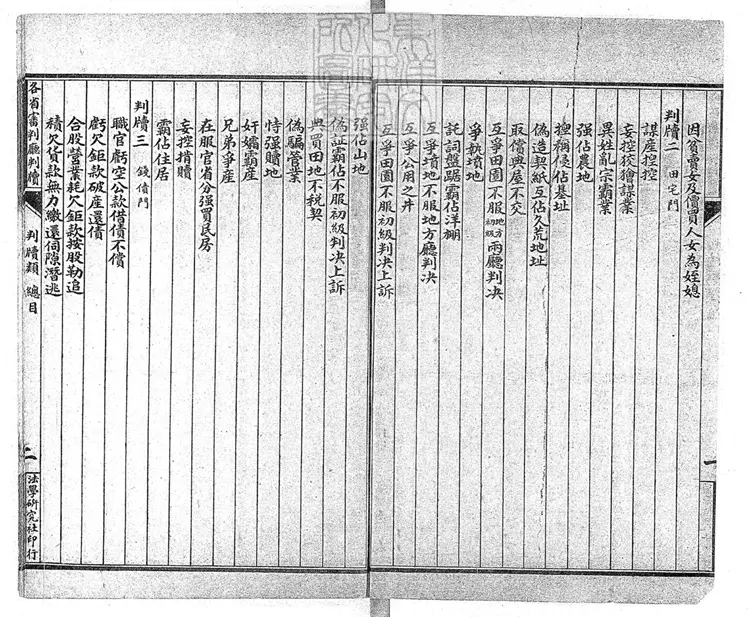 因貧賣女及價買人女為姪媳
判牘二 田宅門
謀產控控
妄控狡獪謀業
異姓亂宗霸業
强佔農地
捏稱侵佔基址
偽造契紙互佔久荒地址
取償典屋不交
互爭田園不服地方初級兩廳判决
爭執墳地
託詞盤踞霸佔洋棚
互爭墳地不服地方廳判决
互爭公用之井
互爭田園不服初級判决上訴
强佔山地
偽証霸佔不服初級判决上訴
典買田地不稅契
偽騙管業
恃强贖地
奸孀霸產
兄弟爭產
在服官省分强買民居
妄控掯贖
霸佔住居
判牘三 錢債門
職官虧空公款借債不償
虧欠鉅款破產還債
合股營業耗欠鉅款按股勒追
積欠貨款無力繳還伺隙潛逃
各省審判廳判牘
判牘類 總目
二
法學研究社印行